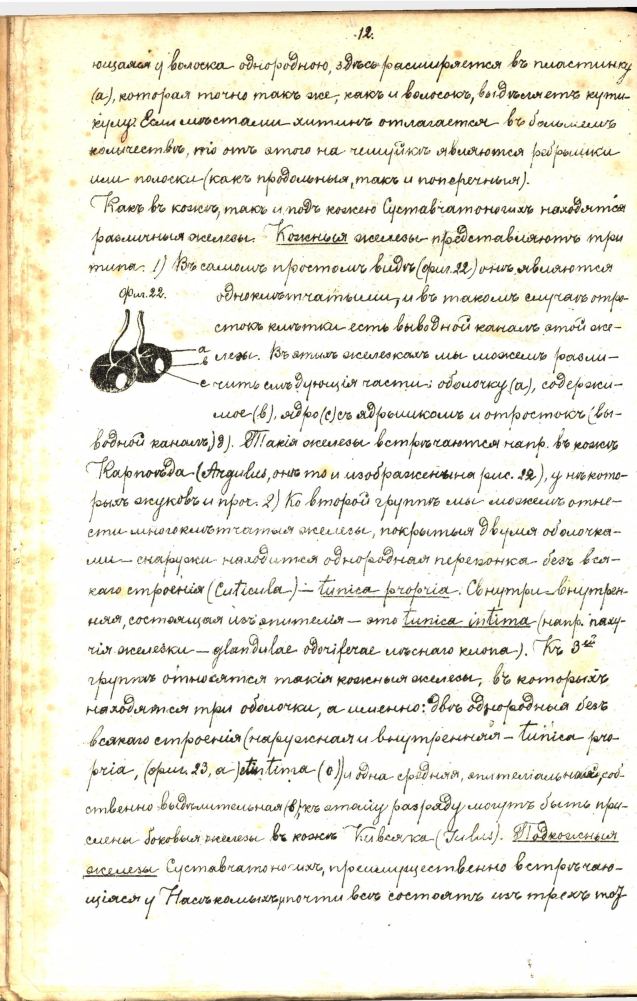 12.
ющаяся у волоска однородною, здѣсь расширяется въ пластинку
(а), которая точно такъ же, какъ и волосокъ, выдѣляетъ кути-
кулу. Если мѣстами хитинъ отлагается въ большемъ
количествѣ, то отъ этого на чешуйкѣ являются ребрышки
или полоски (какъ продольныя, такъ и поперечныя).
Какъ въ кожѣ, такъ и подъ кожею Суставчатоногихъ находятся
различныя железы. Кожныя железы представляютъ три
типа. 1) Въ самомъ простомъ видѣ (фиг. 22) онѣ являются
Фиг. 22.
одноклѣтчатыми, и въ такомъ случаѣ отро-
стокъ клѣтки есть выводной каналъ этой же-
а
лезы. Въ этихъ железкахъ мы можемъ разли-
в
с
чить слѣдующія части: оболочку (а), содержи-
мое (в), ядро (с) съ ядрышкомъ и отростокъ (вы-
водной каналъ). Такія железы встрѣчаются напр. въ кожѣ
Карпоѣда (Argulus, онѣ то и изображены на рис. 22), у нѣкото-
рыхъ жуковъ и проч. 2) Ко второй группѣ мы можемъ отне-
сти многоклѣтчатыя железы, покрытыя двумя оболочка-
ми — снаружи находится однородная перепонка безъ вся-
каго строенія (Cuticula) — tunica propria. Свнутри внутрен-
няя, состоящая изъ эпителія — это tunica intima (напр. паху-
чія железки — glandulae odoriferae лѣснаго клопа). Къ 3ей
группѣ относятся такія кожныя железы, въ которыхъ
находятся три оболочки, а именно: двѣ однородныя безъ
всякаго строенія (наружная и внутренняя — tunica pro-
pria, (фиг. 23, а) intima (о)) и одна средняя, эпителіальная, соб-
ственно выдѣлительная (в); къ этому разряду могутъ быть при-
слены боковыя железы въ кожѣ Кивсяка (Iulus). Подкожныя
железы Суставчатоногихъ, преимущественно встрѣчаю-
щіяся у Насѣкомыхъ, почти всѣ состоятъ изъ трехъ